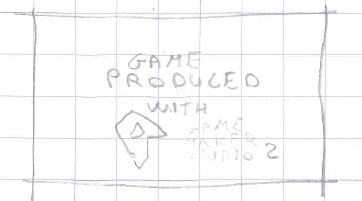 GAME
PRODUCED
WITH
GAME
MAKER
STUDIO 2